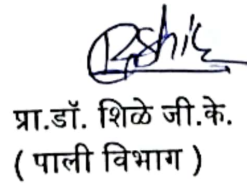 प्रा.डॉ. शिळे जी.के.
( पाली विभाग )